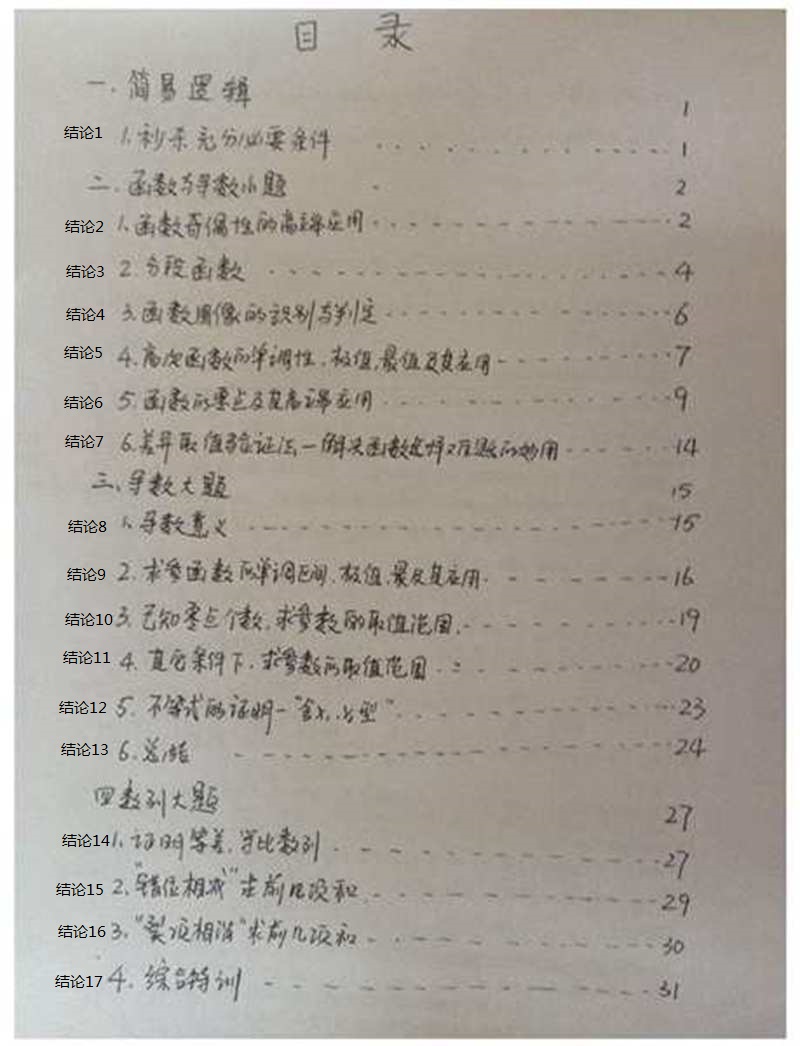 目 录
一.简易逻辑 1
结论1 1.秒杀充分必要条件 ...... 1
二.函数与导数小题 2
结论2 1.函数奇偶性的高端应用 ...... 2
结论3 2.分段函数 ...... 4
结论4 3.函数图像的识别与判定 ...... 6
结论5 4.高次函数的单调性.极值,最值及其应用 ...... 7
结论6 5.函数的零点及其高端应用 ...... 9
结论7 6.差异取值验证法—解决函数选择难题的妙用 ...... 14
三.导数大题 15
结论8 1.导数意义 ...... 15
结论9 2.求参函数的单调区间.极值,最及其应用 ...... 16
结论10 3.已知零点个数,求参数的取值范围. ...... 19
结论11 4.其它条件下.求参数的取值范围 ...... 20
结论12 5.不等式的证明—"含 型" ...... 23
结论13 6.总结 ...... 24
四数列大题 27
结论14 1.证明等差.等比数列 ...... 27
结论15 2."错位相减"求前几项和 ...... 29
结论16 3."裂项相消"求前几项和 ...... 30
结论17 4.综合特训 ...... 31